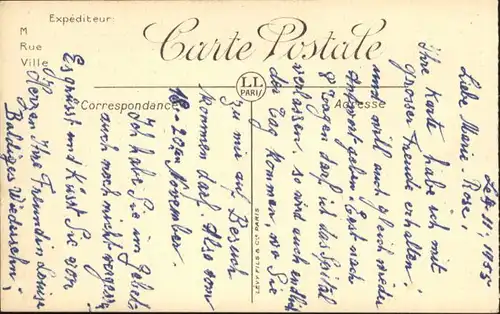 Expéditeur:
M
Rue
Ville
Carte Postale
LL
PARIS
Correspondance
Adresse
LEVY FILS & Cie PARIS
Liebe Marie Rose,
Ihre Karte habe ich mit
grosser Freude erhalten.
und will auch gleich wieder
Antwort geben. Erst nach
8 Tagen darf ich das Spital
verlassen. So wird auch endlich
der Tag kommen, wo Sie
zu mir auf Besuch
kommen darf. Also vom
18-20en November.
Ich habe Sie im Gebet
auch noch nicht vergessen
Es grüsst und Küsst Sie von
Herzen Ihre Freundin Louise
Baldiges Wiedersehn!